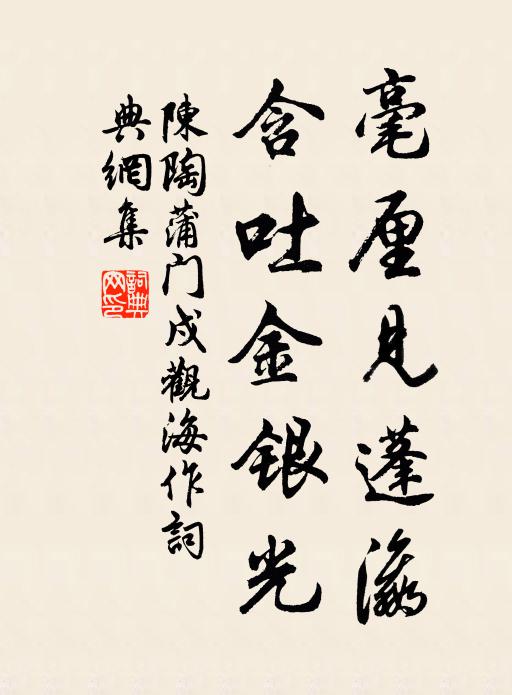 毫厘見蓬瀛
含吐金銀光
陳陶蒲门戍觀海作詞
典網集
詞典網印